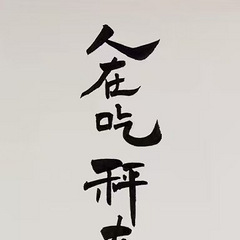 人在吃秤